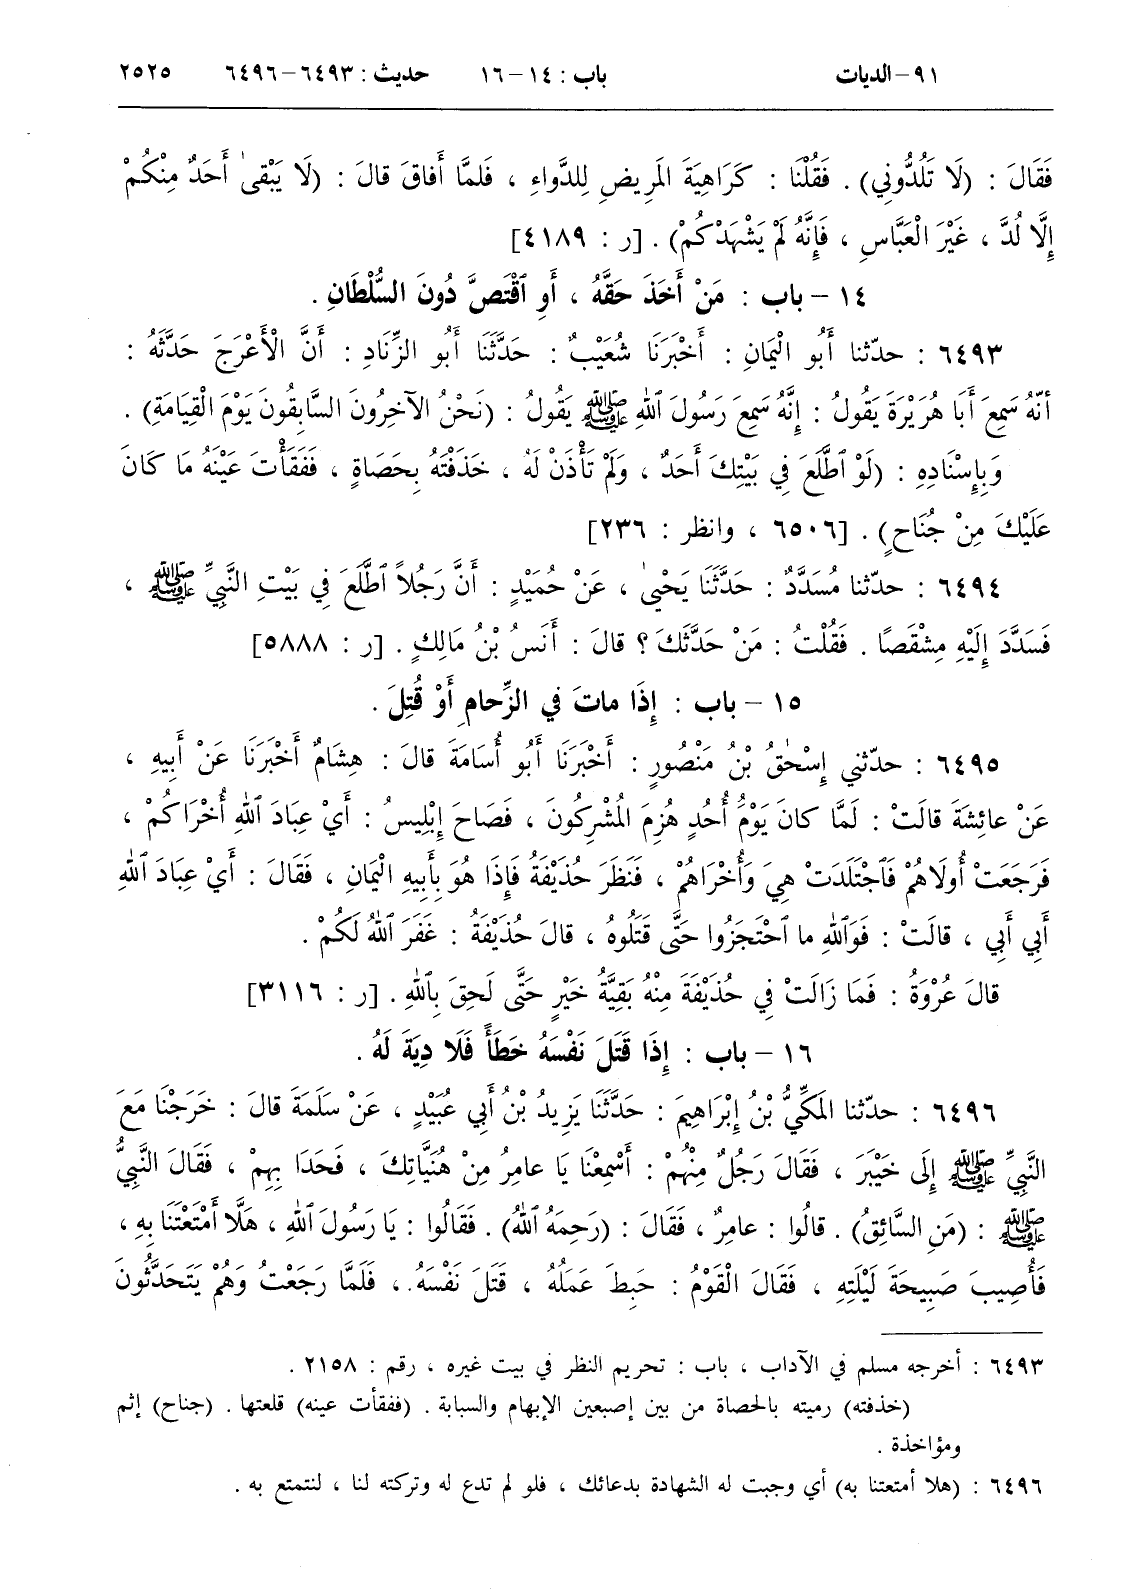 ٩١-الديات باب : ١٤-١٦ حديث : ٦٤٩٣-٦٤٩٦ ٢٥٢٥
فَقَالَ : (لَا تَلُدُّونِي) . فَقُلْنَا : كَرَاهِيَةَ المَرِيضِ لِلدَّواءِ ، فَلمَّا أَفاقَ قالَ : (لَا يَبْقىٰ أَحَدٌ مِنْكُمْ
إِلَّا لُدَّ ، غَيْرَ الْعَبَّاسِ ، فَإِنَّهُ لَمْ يَشْهَدْكُمْ) . [ر : ٤١٨٩]
١٤ – باب : مَنْ أَخَذَ حَقَّهُ ، أَوِ ٱقْتَصَّ دُونَ السُّلْطَانِ .
٦٤٩٣ : حدّثنا أَبُو الْيَمَانِ : أَخْبَرَنَا شُعَيْبٌ : حَدَّثَنَا أَبُو الزِّنَادِ : أَنَّ الْأَعْرَجَ حَدَّثَهُ :
أَنَّهُ سَمِعَ أَبَا هُرَيْرَةَ يَقُولُ : إِنَّهُ سَمِعَ رَسُولَ ٱللهِ ﷺ يَقُولُ : (نَحْنُ الآخِرُونَ السَّابِقُونَ يَوْمَ الْقِيَامَةِ) .
وَبِإِسْنَادِهِ : (لَوِ ٱطَّلَعَ فِي بَيْتِكَ أَحَدٌ ، وَلَمْ تَأْذَنْ لَهُ ، خَذَفْتَهُ بِحَصَاةٍ ، فَفَقَأْتَ عَيْنَهُ مَا كَانَ
عَلَيْكَ مِنْ جُنَاحٍ) . [٦٥٠٦ ، وانظر : ٢٣٦]
٦٤٩٤ : حدّثنا مُسَدَّدٌ : حَدَّثَنَا يَحْيىٰ ، عَنْ حُمَيْدٍ : أَنَّ رَجُلاً ٱطَّلَعَ فِي بَيْتِ النَّبِيِّ ﷺ ،
فَسَدَّدَ إِلَيْهِ مِشْقَصًا . فَقُلْتُ : مَنْ حَدَّثَكَ ؟ قالَ : أَنَسُ بْنُ مَالِكٍ . [ر : ٥٨٨٨]
١٥ – باب : إِذَا ماتَ في الزِّحامِ أَوْ قُتِلَ .
٦٤٩٥ : حدّثني إِسْحٰقُ بْنُ مَنْصُورٍ : أَخْبَرَنَا أَبُو أُسَامَةَ قالَ : هِشَامٌ أَخْبَرَنَا عَنْ أَبِيهِ ،
عَنْ عائِشَةَ قالَتْ : لَمَّا كانَ يَوْمُ أُحُدٍ هُزِمَ المُشْرِكُونَ ، فَصَاحَ إِبْلِيسُ : أَيْ عِبَادَ ٱللهِ أُخْرَاكُمْ ،
فَرَجَعَتْ أُولَاهُمْ فَٱجْتَلَدَتْ هِيَ وَأُخْرَاهُمْ ، فَنَظَرَ حُذَيْفَةُ فَإِذَا هُوَ بِأَبِيهِ الْيَمَانِ ، فَقَالَ : أَيْ عِبَادَ ٱللهِ
أَبِي أَبِي ، قالَتْ : فَوَٱللهِ ما ٱحْتَجَزُوا حَتَّى قَتَلُوهُ ، قالَ حُذَيْفَةُ : غَفَرَ ٱللهُ لَكُمْ .
قالَ عُرْوَةُ : فَمَا زَالَتْ فِي حُذَيْفَةَ مِنْهُ بَقِيَّةُ خَيْرٍ حَتَّى لَحِقَ بِٱللهِ . [ر : ٣١١٦]
١٦ – باب : إِذَا قَتَلَ نَفْسَهُ خَطَأً فَلَا دِيَةَ لَهُ .
٦٤٩٦ : حدّثنا المَكِّيُّ بْنُ إِبْرَاهِيمَ : حَدَّثَنَا يَزِيدُ بْنُ أَبِي عُبَيْدٍ ، عَنْ سَلَمَةَ قالَ : خَرَجْنَا مَعَ
النَّبِيِّ ﷺ إِلَى خَيْبَرَ ، فَقَالَ رَجُلٌ مِنْهُمْ : أَسْمِعْنَا يَا عامِرُ مِنْ هُنَيَّاتِكَ ، فَحَدَا بِهِمْ ، فَقَالَ النَّبِيُّ
ﷺ : (مَنِ السَّائِقُ) . قالُوا : عامِرٌ ، فَقَالَ : (رَحِمَهُ ٱللهُ) . فَقَالُوا : يَا رَسُولَ ٱللهِ ، هَلَّا أَمْتَعْتَنَا بِهِ ،
فَأُصِيبَ صَبِيحَةَ لَيْلَتِهِ ، فَقَالَ الْقَوْمُ : حَبِطَ عَمَلُهُ ، قَتَلَ نَفْسَهُ ، فَلَمَّا رَجَعْتُ وَهُمْ يَتَحَدَّثُونَ
٦٤٩٣ : أخرجه مسلم في الآداب ، باب : تحريم النظر في بيت غيره ، رقم : ٢١٥٨ .
(خذفته) رميته بالحصاة من بين إصبعين الإبهام والسبابة . (ففقأت عينه) قلعتها . (جناح) إثم
ومؤاخذة .
٦٤٩٦ : (هلا أمتعتنا به) أي وجبت له الشهادة بدعائك ، فلو لم تدع له وتركته لنا ، لنتمتع به .